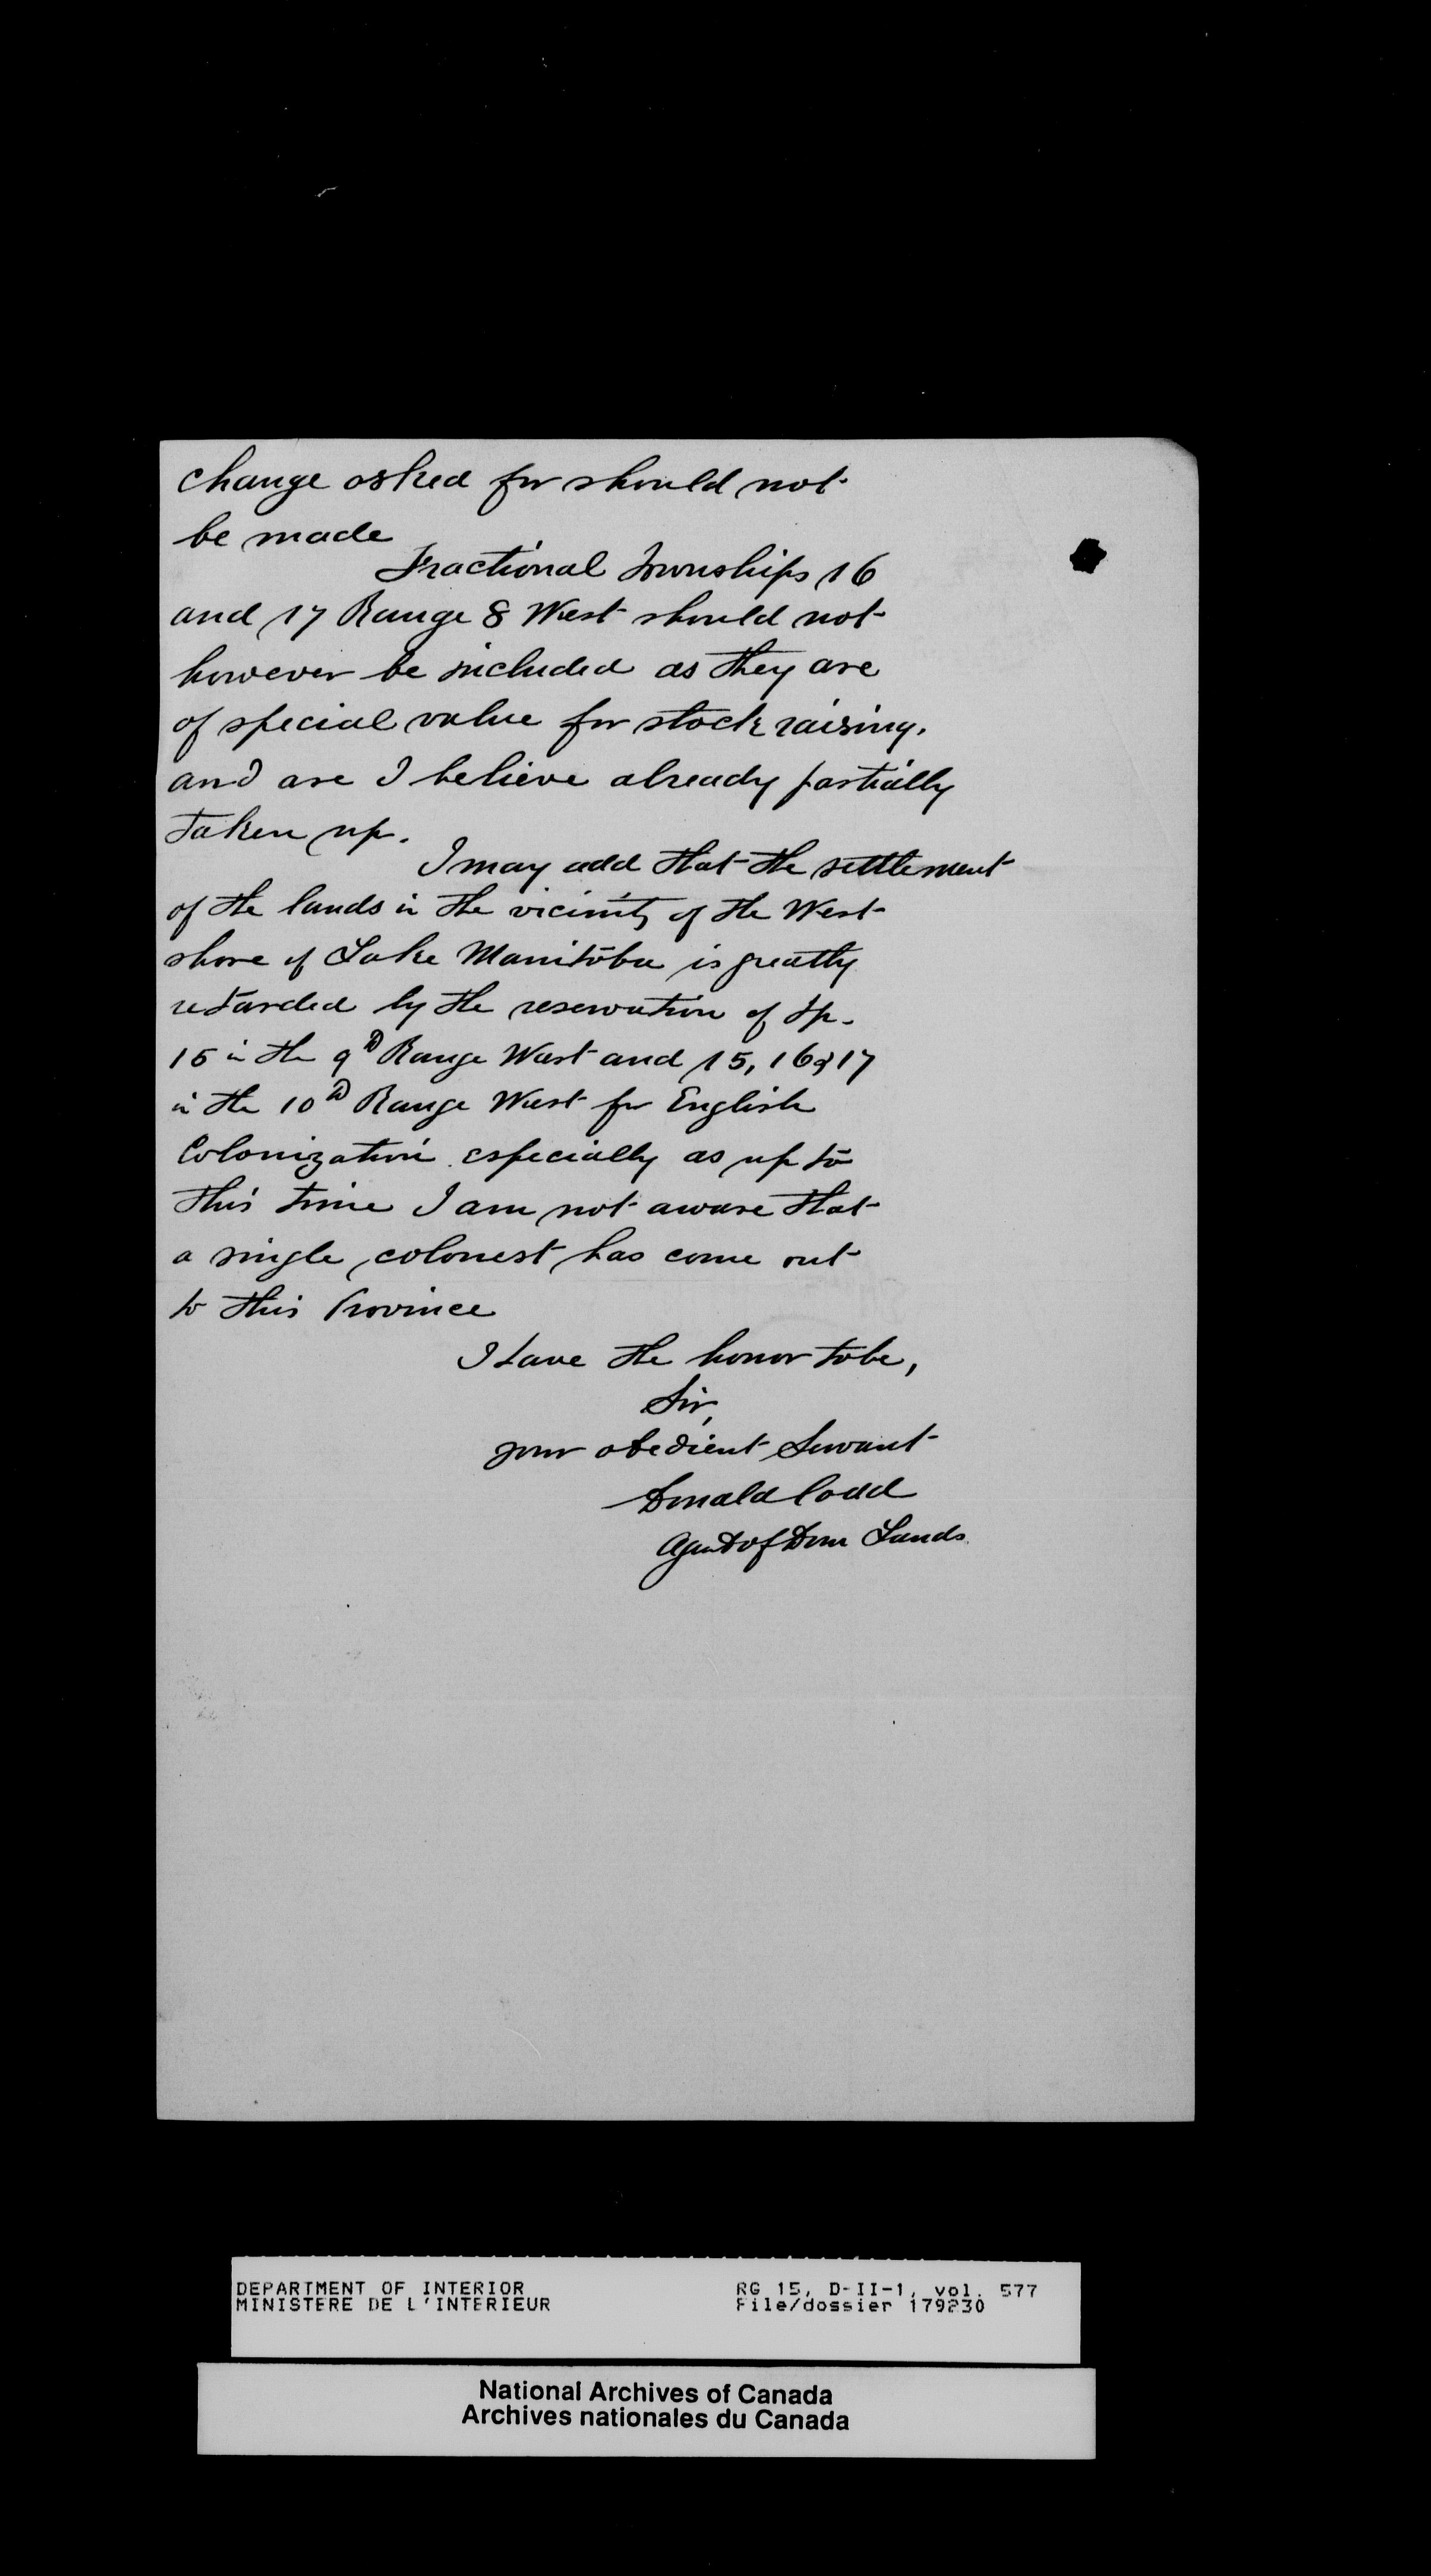 change asked for should not
be made
Fractional Townships 16
and 17 Range 8 West should not
however be included as they are
of special value for stock raising.
and are I believe already partially
taken up.
I may add that the settlement
of the lands in the vicinity of the West
shore of Lake Manitoba is greatly
retarded by the reservation of Tp.
15 in the 9th Range West and 15, 16 & 17
in the 10th Range West for English
Colonization especially as up to
this time I am not aware that
a single colonest has come out
to this Province
I have the honor to be,
Sir,
your obedient Servant
Donald Codd
Agent of Dom Lands.
DEPARTMENT OF INTERIOR RG 15, D-II-1, vol. 577
MINISTERE DE L'INTERIEUR File/dossier 179230
National Archives of Canada
Archives nationales du Canada